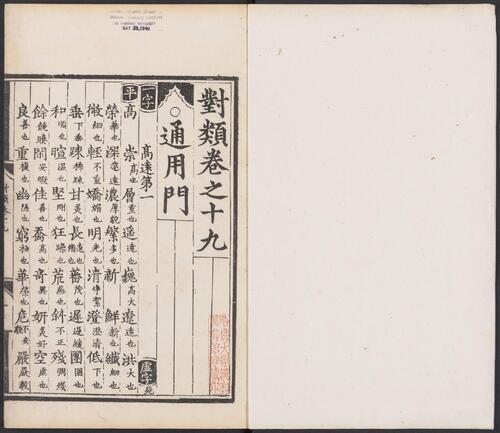 對類卷之十九
通用門
一字
高遠第一
虛字死
平
高 崇高也 層重也 遥遠也 巍高大 遼遠也 洪大也
榮華也 深邃遠 濃厚貌 繁多也 新 鮮新也 纖細也
微細也 輕不重 嬌媚也 明光也 清浄潔 澄澄清 低下也
垂下垂 踈稀踈 甘美也 長 蕃茂也 遲遲緩 團圓也
和順也 暄温也 堅剛也 狂躁也 荒蕪也 斜不正 殘凋殘
餘饒賸 閑安暇 佳善也 喬高也 奇異也 妍美好 空虛也
良善也 重複也 幽隱也 窮極也 華榮也 危不安貌 嚴嚴毅
MAY 28, 1940